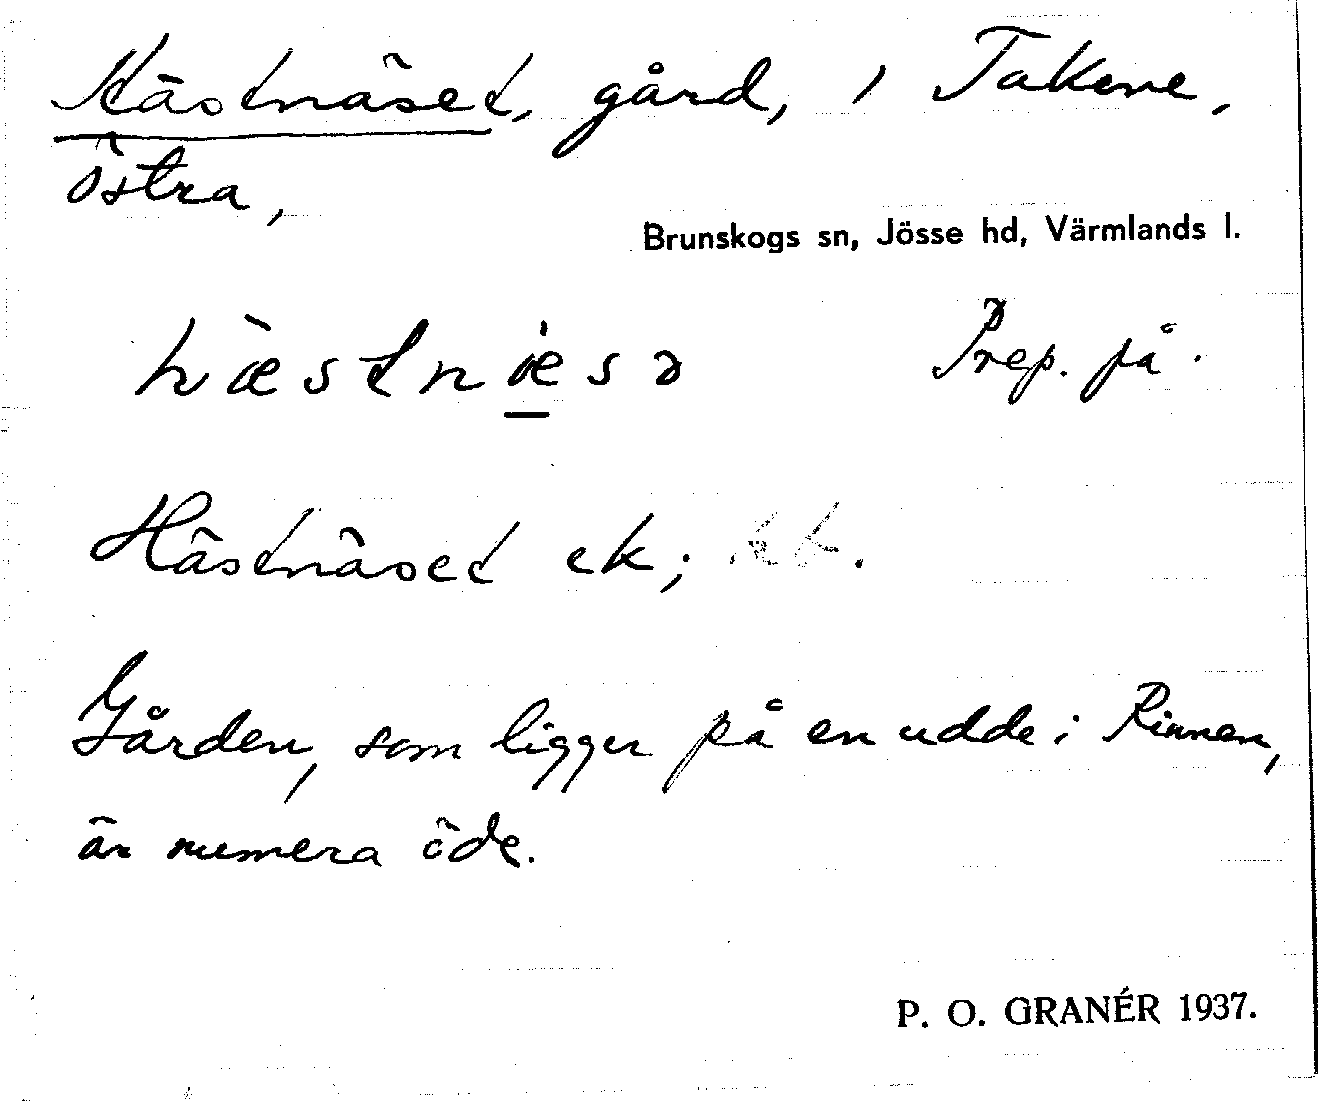 Hästnäset, gård, i Takene,
östra,
Brunskogs sn, Jösse hd, Värmlands l.
hæ̀stnæ̀sə Prep. på.
Hästnäset ek;
Gården, som ligger på en udde i Rinnen,
är numera öde.
P. O. GRANÉR 1937.